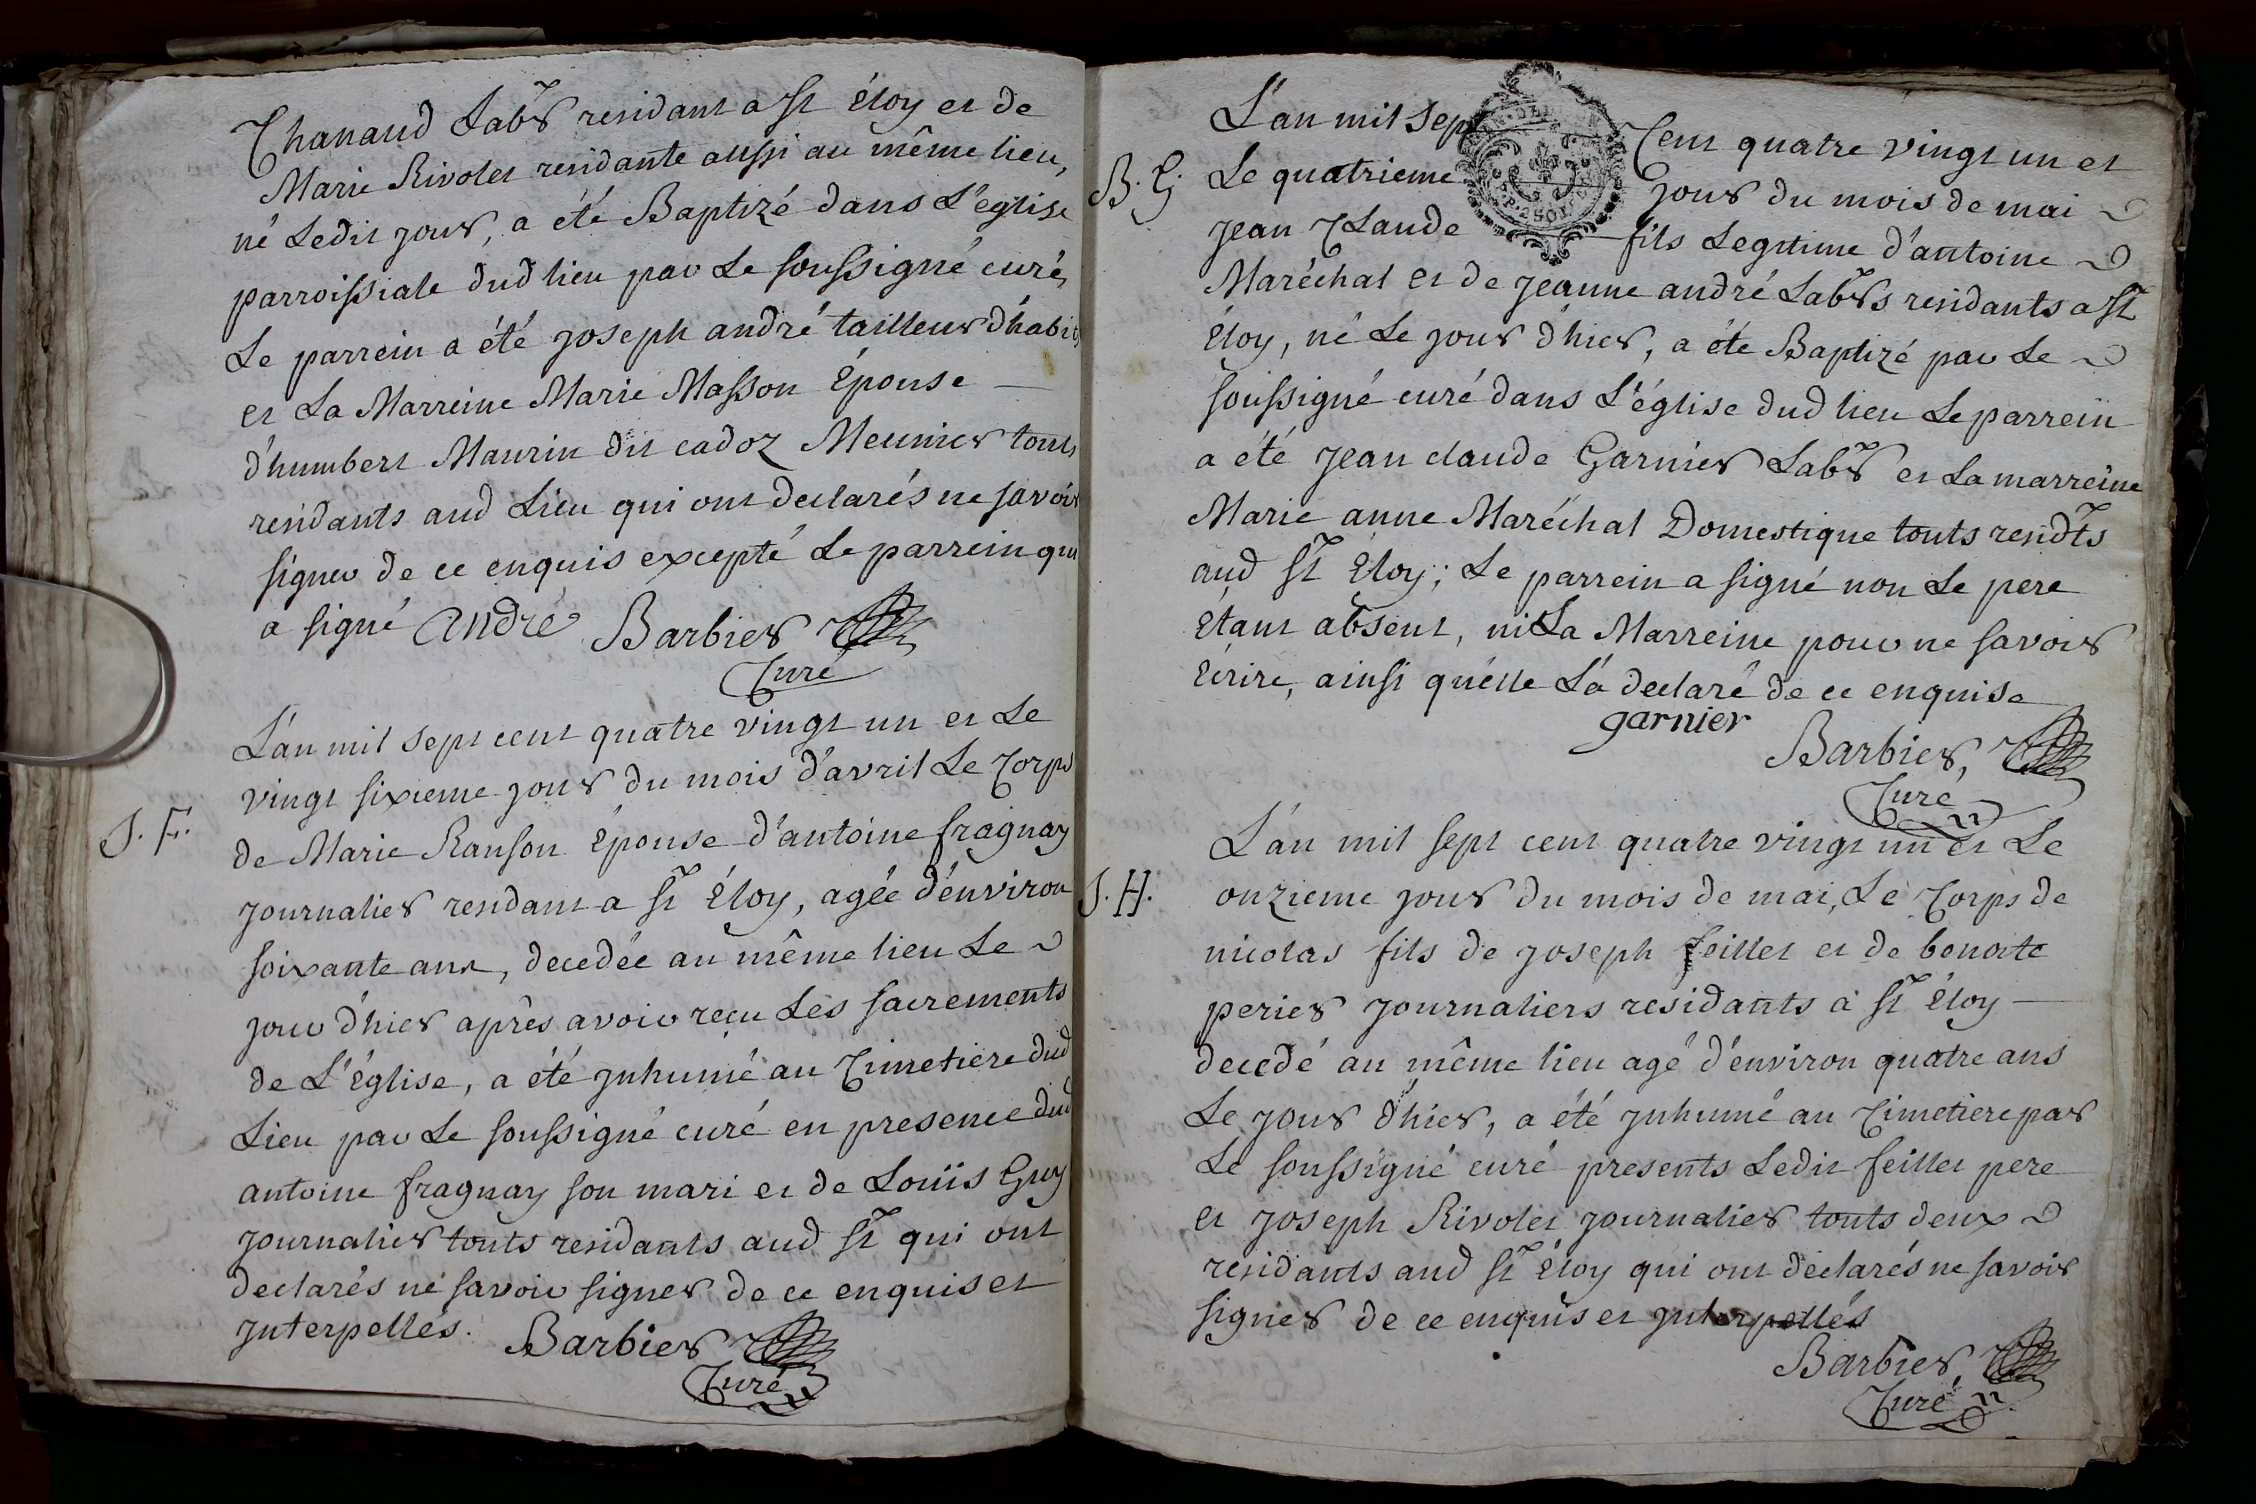 Chanaud Labr residant a St Éloy et de
Marie Rivolet residante aussi au même lieu,
né Ledit jour, a été Baptizé dans L'église
parroissiale dud lieu par Le soussigné curé,
Le parrein a été joseph andré tailleur d'habits
et La Marreine Marie Masson Épouse
d'humbert Maurin dit cadoz Meunier touts
residants aud Lieu qui ont declarés ne savoir
signer de ce enquis excepté Le parrein qui
a signé andré Barbier
Curé
L'an mil sept cent quatre vingt un et Le
vingt sixieme jour du mois d'avril Le Corps
S. F.
de Marie Ranson Épouse d'antoine fragnay
journalier residant a St Éloy, agée d'environ
soixante ans, decedée au même lieu Le
jour d'hier après avoir reçu Les sacrements
de L'Église, a été jnhumé au Cimetiere dud
Lieu par Le soussigné curé en presence dud
antoine fragnay son mari et de Louïs Guy
journalier touts residants aud St qui ont
declarés ne savoir signer de ce enquis et
jnterpellés. Barbier
Curé
L'an mil sept Cent quatre vingt un et
B. G. Le quatrieme jour du mois de mai
jean Claude fils Legitime d'antoine
Maréchal et de jeanne andré Labrs residants a St
Éloy, né Le jour d'hier, a éte Baptizé par Le
soussigné curé dans L'église dud lieu Le parrein
a été jean claude Garnier Labr et La marreine
Marie anne Maréchal Domestique touts residts
aud St Éloy; Le parrein a signé non Le pere
étant absent, ni La Marreine pour ne savoir
Écrire, ainsi quélle L'a declaré de ce enquise
garnier
Barbier,
Curé
L'an mil sept cent quatre vingt un et Le
S. H. onzieme jour du mois de mai, Le Corps de
nicolas fils de joseph feillet et de benoite
perier journaliers residants a St Éloy
decedé au même lieu agé d'environ quatre ans
Le jour d'hier, a été jnhumé au Cimetiere par
Le soussigné curé presents Ledit feillet pere
et joseph Rivolet journalier touts deux
residants aud St Éloy qui ont declarés ne savoir
signer de ce enquis et jnterpellés
Barbier,
Curé